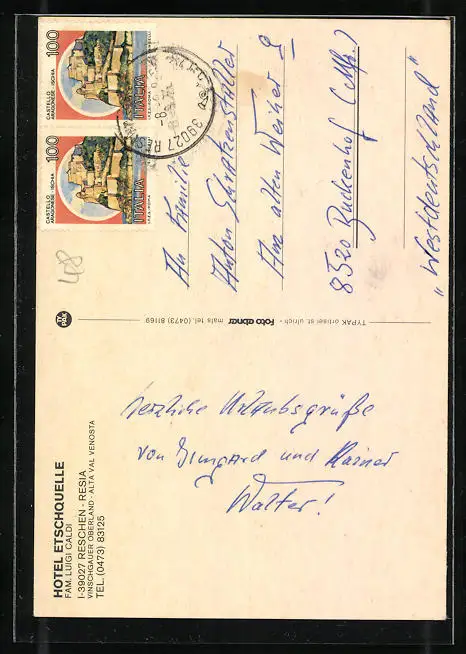 HOTEL ETSCHQUELLE
FAM. LUIGI CALDI
I-39027 RESCHEN - RESIA
VINSCHGAUER OBERLAND - ALTA VAL VENOSTA
TEL. (0473) 83125
herzliche Urlaubsgrüße
von Irmgard und Rainer
Walter!
TYPAK ortisei st. ulrich - foto abner mals tel. (0473) 81169
TY PAK
48
100
CASTELLO
ARAGONESE - ISCHIA
ITALIA
I.P.Z.S. ROMA
100
CASTELLO
ARAGONESE - ISCHIA
ITALIA
I.P.Z.S. ROMA
39027
An Familie
Anton Schratzenstaller
Am alten Weiher 9
8520 Buckenhof (Mfr.)
"Westdeutschland"